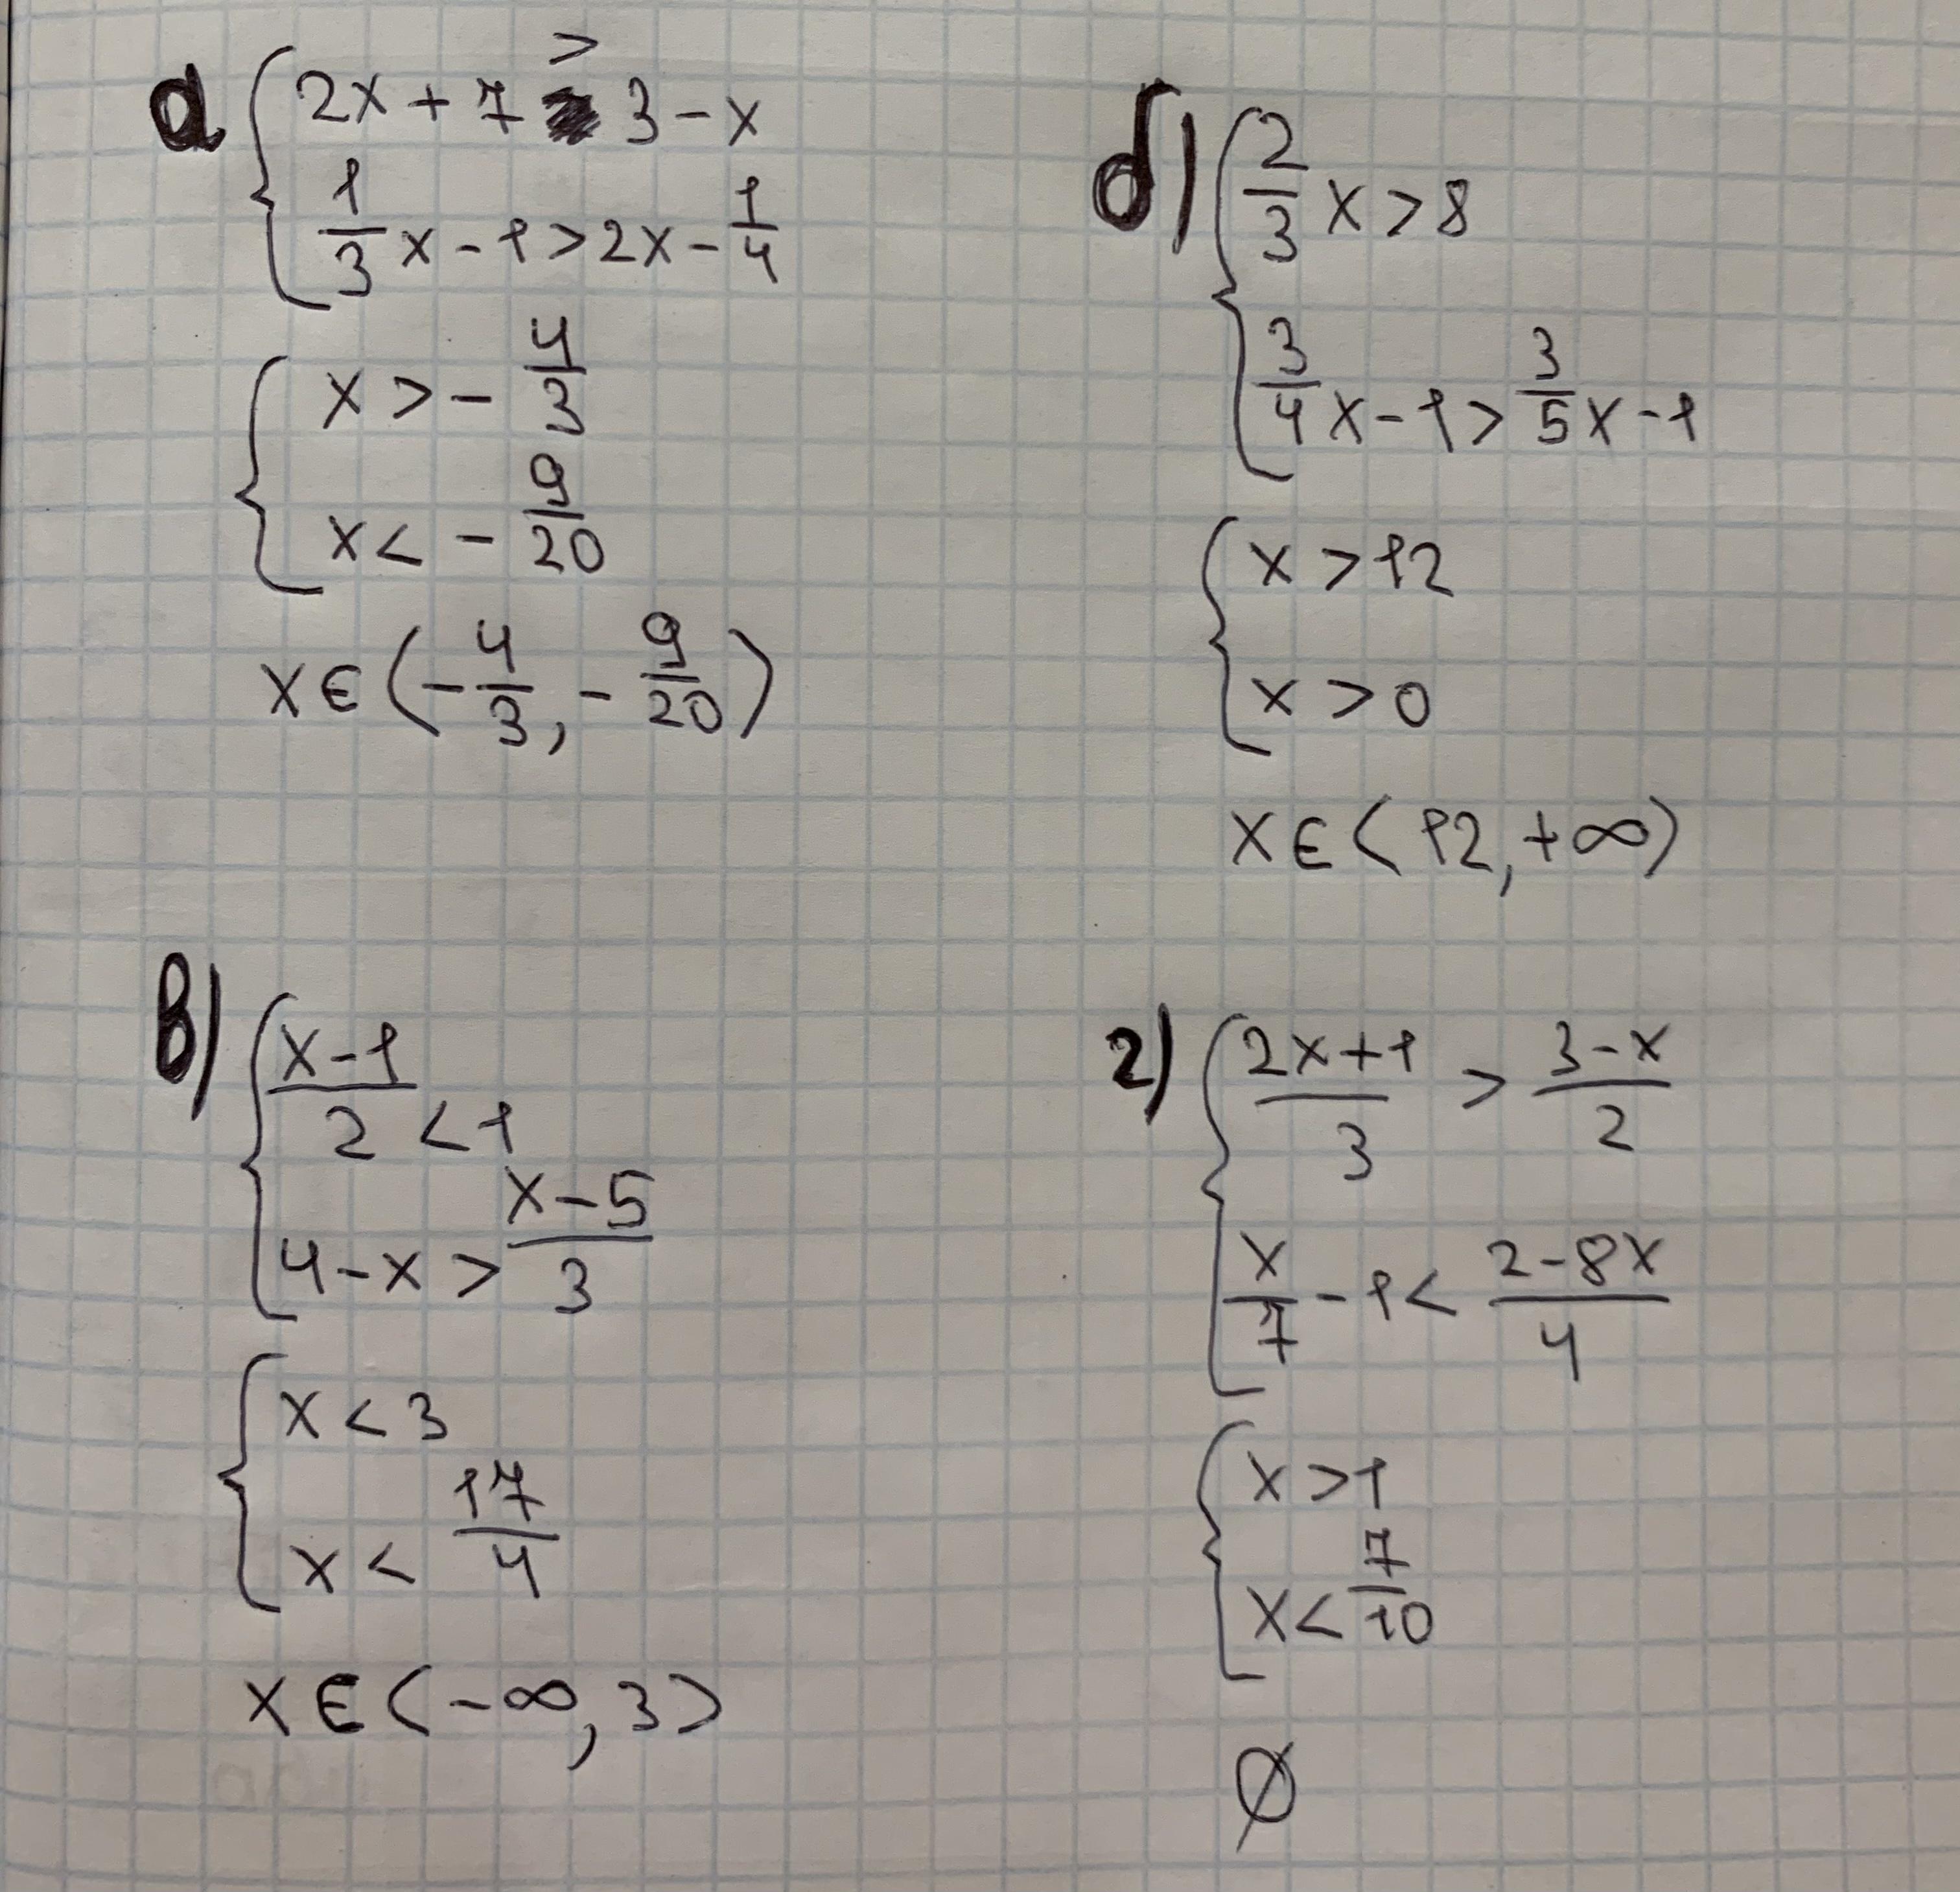 а
2x + 7 > 3 - x
1/3 x - 1 > 2x - 1/4
x > - 4/3
x < - 9/20
x ∈ (- 4/3, - 9/20)
б)
2/3 x > 8
3/4 x - 1 > 3/5 x - 1
x > 12
x > 0
x ∈ (12, +∞)
в)
(x - 1)/2 < 1
4 - x > (x - 5)/3
x < 3
x < 17/4
x ∈ (-∞, 3)
г)
(2x + 1)/3 > (3 - x)/2
x/7 - 1 < (2 - 8x)/4
x > 1
x < 7/10
∅